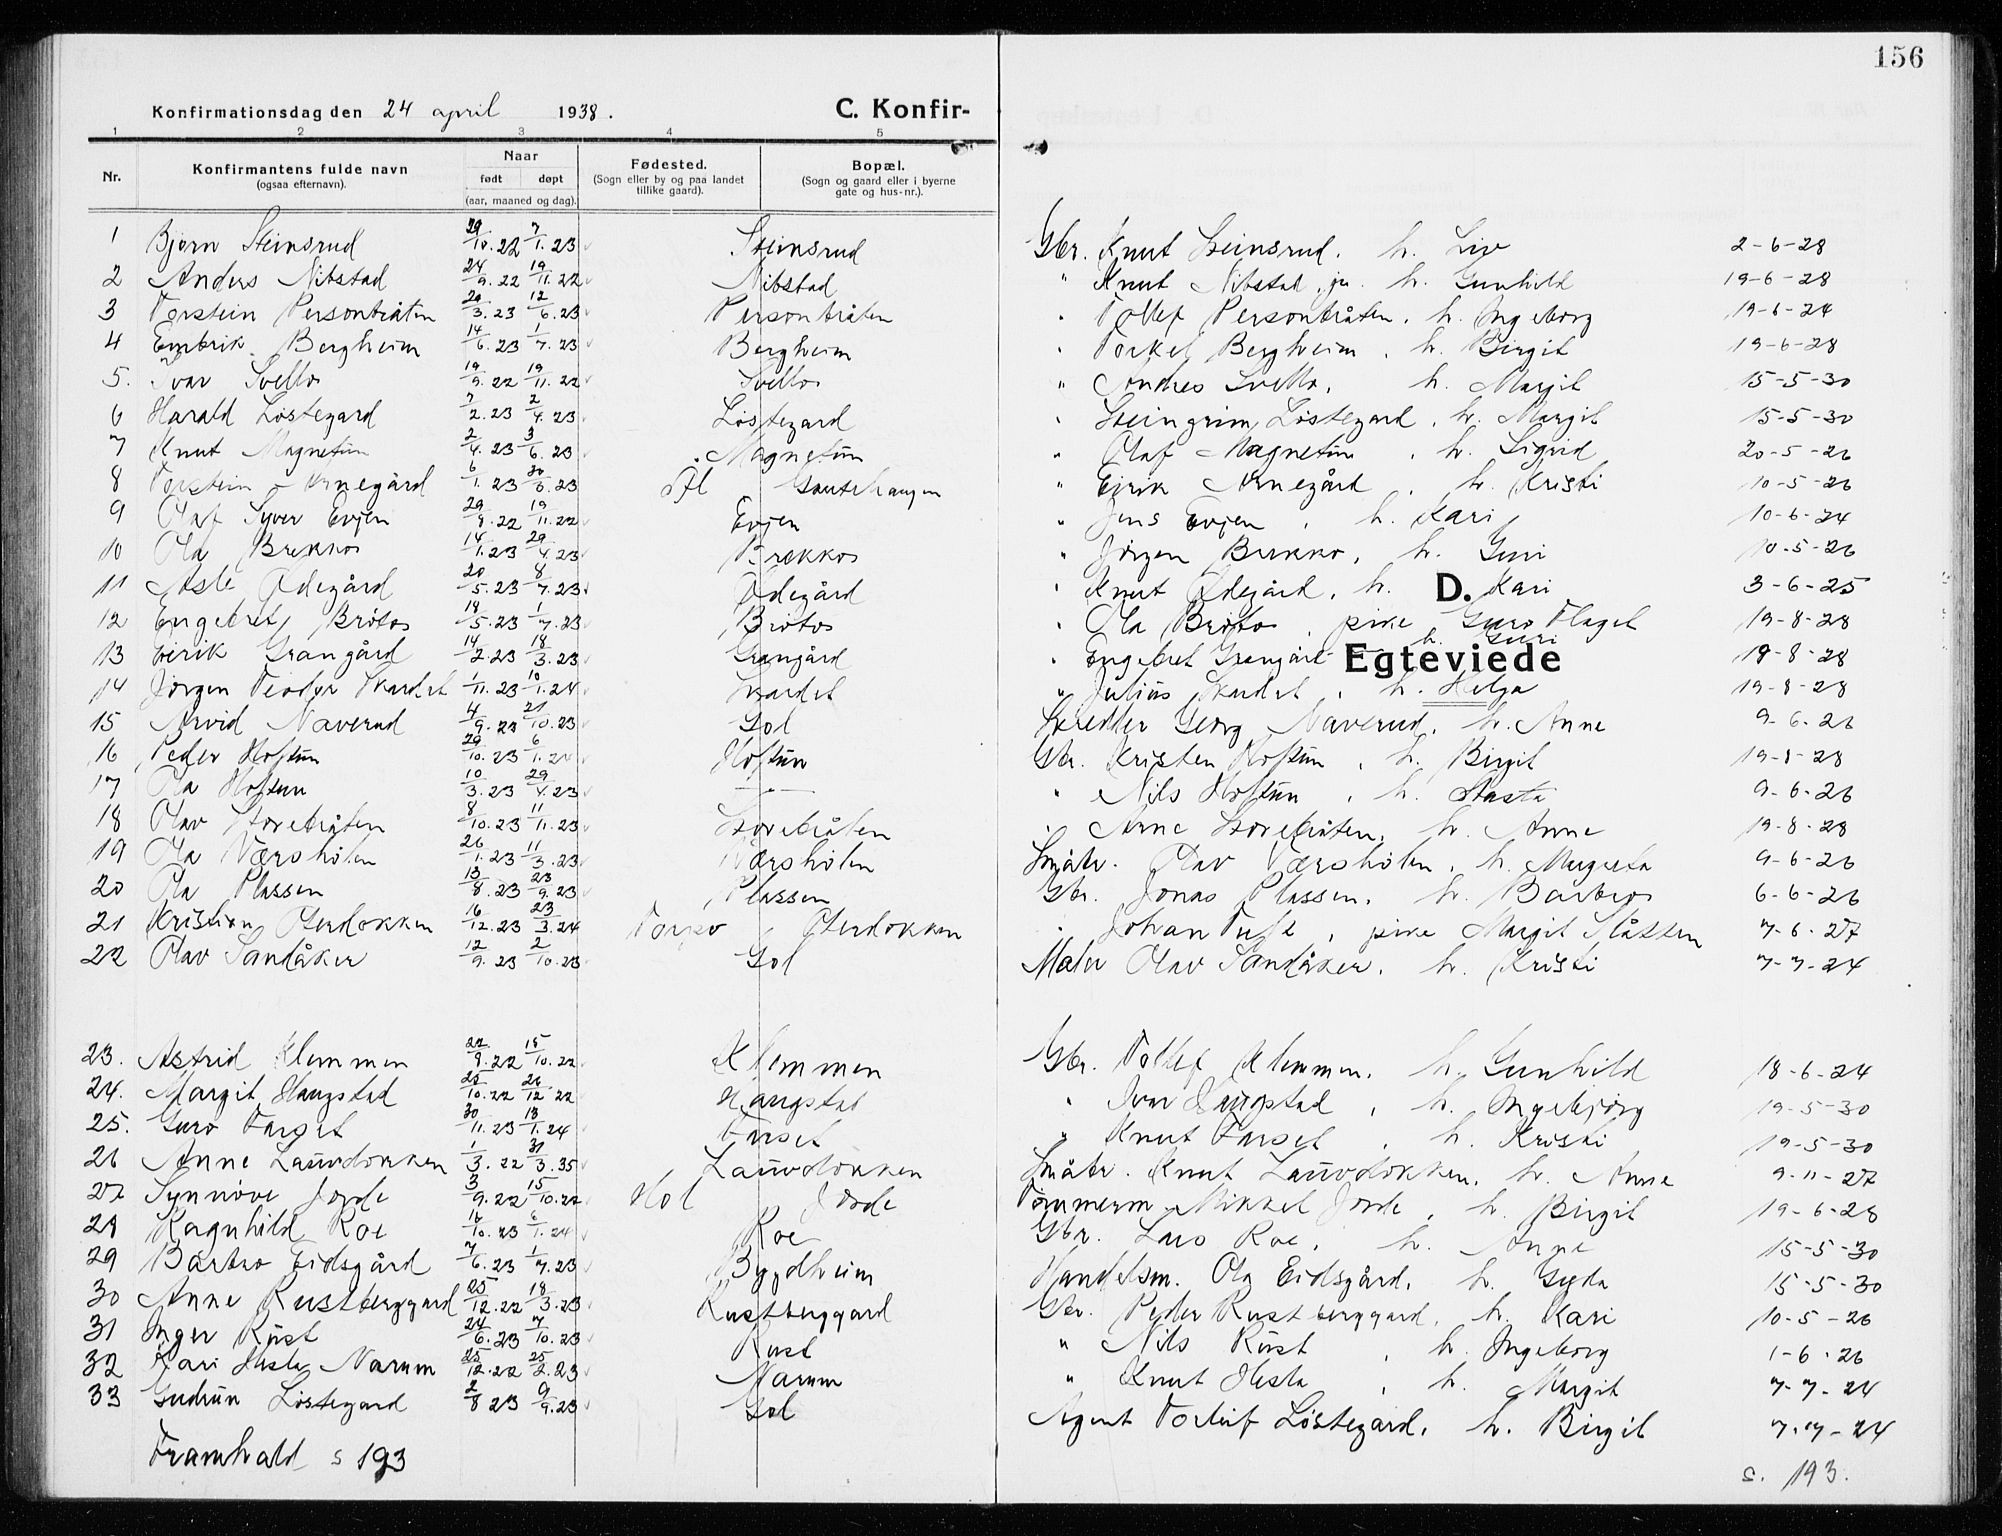 156
Konfirmationsdag den 24 april 1938. C. Konfir-
1 2 3 4 5
Nr. Konfirmantens fulde navn (ogsaa efternavn). Naar født døpt (aar, maaned og dag). Fødested. (Sogn eller by og paa landet tillike gaard). Bopæl. (Sogn og gaard eller i byerne gate og hus-nr.).
1 Bjørn Steinsrud 29/10.22 7/1.23 Steinsrud Gbr. Knut Steinsrud. h. Liv 2-6-28
2 Anders Nibstad 24/9.22 19/11.22 Nibstad " Knut Nibstad jr. h. Gunhild 19-6-28
3 Torstein Personbråten 29/3.23 12/6.23 Personbråten " Tollef Personbråten. h. Ingeborg 19-6-24
4 Embrik Bergheim 14/6.23 1/7.23 Bergheim " Torkel Bergheim. h. Birgit 19-6-28
5. Ivar Svello 19/9.22 19/11.22 Svello " Andres Svello. h. Margit 15-5-30
6 Harald Løstegard 7/2.23 2/4.23 Løstegard " Steingrim Løstegard. h. Margit 15-5-30
7 Knut Magnetun 2/4.23 3/6.23 Magnetun " Olaf Magnetun. h. Sigrid 20-5-26
8 Torstein Arnegård 6/1.23 Ål Gautehaugen " Eirik Arnegård. h. Kristi 10-5-26
9 Olaf Syver Evjen 19/11.22 Evjen " Jens Evjen. h. Kari 10-6-24
10 Ola Brekko 14/1.23 29/4.23 Brekko " Jørgen Brekko. h. Guri 10-5-26
11 Asle Ødegård 20/5.23 8/7.23 Ødegård " Knut Ødegård. h. Kari 3-6-25
D.
12 Engebret Brøto 18/5.23 1/7.23 Brøto " Ola Brøto, pike Guro Flaget 19-8-28
13 Eirik Grangård 14/2.23 18/3.23 Grangård " Engebret Grangård h. Guri 19-8-28
Egteviede
14 Jørgen Teodor Skardet 1/11.23 10/1.24 Skardet " Julius Skardet, h. Helga 19-8-28
15 Arvid Naverud 4/9.23 21/10.23 Gol Georg Naverud. h. Anne 9-6-26
16 Peder Hoftun 29/10.23 6/1.24 Hoftun Gbr. Kristen Hoftun, h. Birgit 19-8-28
17 Ola Hoftun 10/3.23 29/4.23 — " — " Nils Hoftun, h. Aasta 9-6-26
18 Olav Storebråten 8/10.23 11/11.23 Storebråten " Arne Storebråten. h. Anne 19-8-28
19 OlaVærshølen 26/1.23 11/3.23 Værshølen Småbr. Olav Værshølen. h. Margreta 9-6-26
20 Ola Plassen 13/8.23 23/9.23 Plassen Gbr. Jonas Plassen. h. Barbro 6-6-26
21 Kristian Øterdokken 16/12.23 23/3.24 Torpo Øterdokken " Johan Tuft, pike Margit Slåtten 7-6-27
22 Olav Sandåker 12/9.23 2/10.23 Gol Maler Olav Sandåker. h. Kristi 7-7-24
23. Astrid Klemmen 22/8.22 15/10.22 Klemmen Gbr. Tollef Klemmen. h. Gunhild 18-6-24
24. Margit Haugstad 26/12 22 Haugstad " Ivar Haugstad, h. Ingebjørg 19-5-30
25. Guro Farset 30/11.23 13/1.24 Farset " Knut Farset, h. Kristi 19-5-30
26 Anne Lauvdokken 1/3.22 31/3.35 Lauvdokken Småbr. Knut Lauvdokken. h. Anne 9-11-27
27 Synnøve Jorde 3/9.22 15/10.22 Hol Jorde Tømmerm. Mikkel Jorde, h. Birgit 19-6-28
28 Ragnhild Roe 16/10.23 6/1.24 Roe Gbr. Lars Roe. h. Anne 15-5-30
29 Barbro Eidsgård 7/6.23 1/7.23 Bygdheim Handelsm. Ola Eidsgård. h. Gyda 15-5-30
30 Anne Rustberggard 25/12.22 18/3.23 Rustberggard Gbr. Peder Rustberggard. h. Kari 10-5-26
31 Inger Rust 24/6.23 7/10.23 Rust " Nils Rust, h. Ingeborg 1-6-26
32 Kari Hesla Narum 25/12.22 25/2.23 Narum " Knut Hesla, h. Margit 7-7-24
33 Gudrun Løstegard 2/8 23 9/9.23 Gol Agent Torleif Løstegard. h. Birgit 7-7-24
Framhald s 193 s. 193.